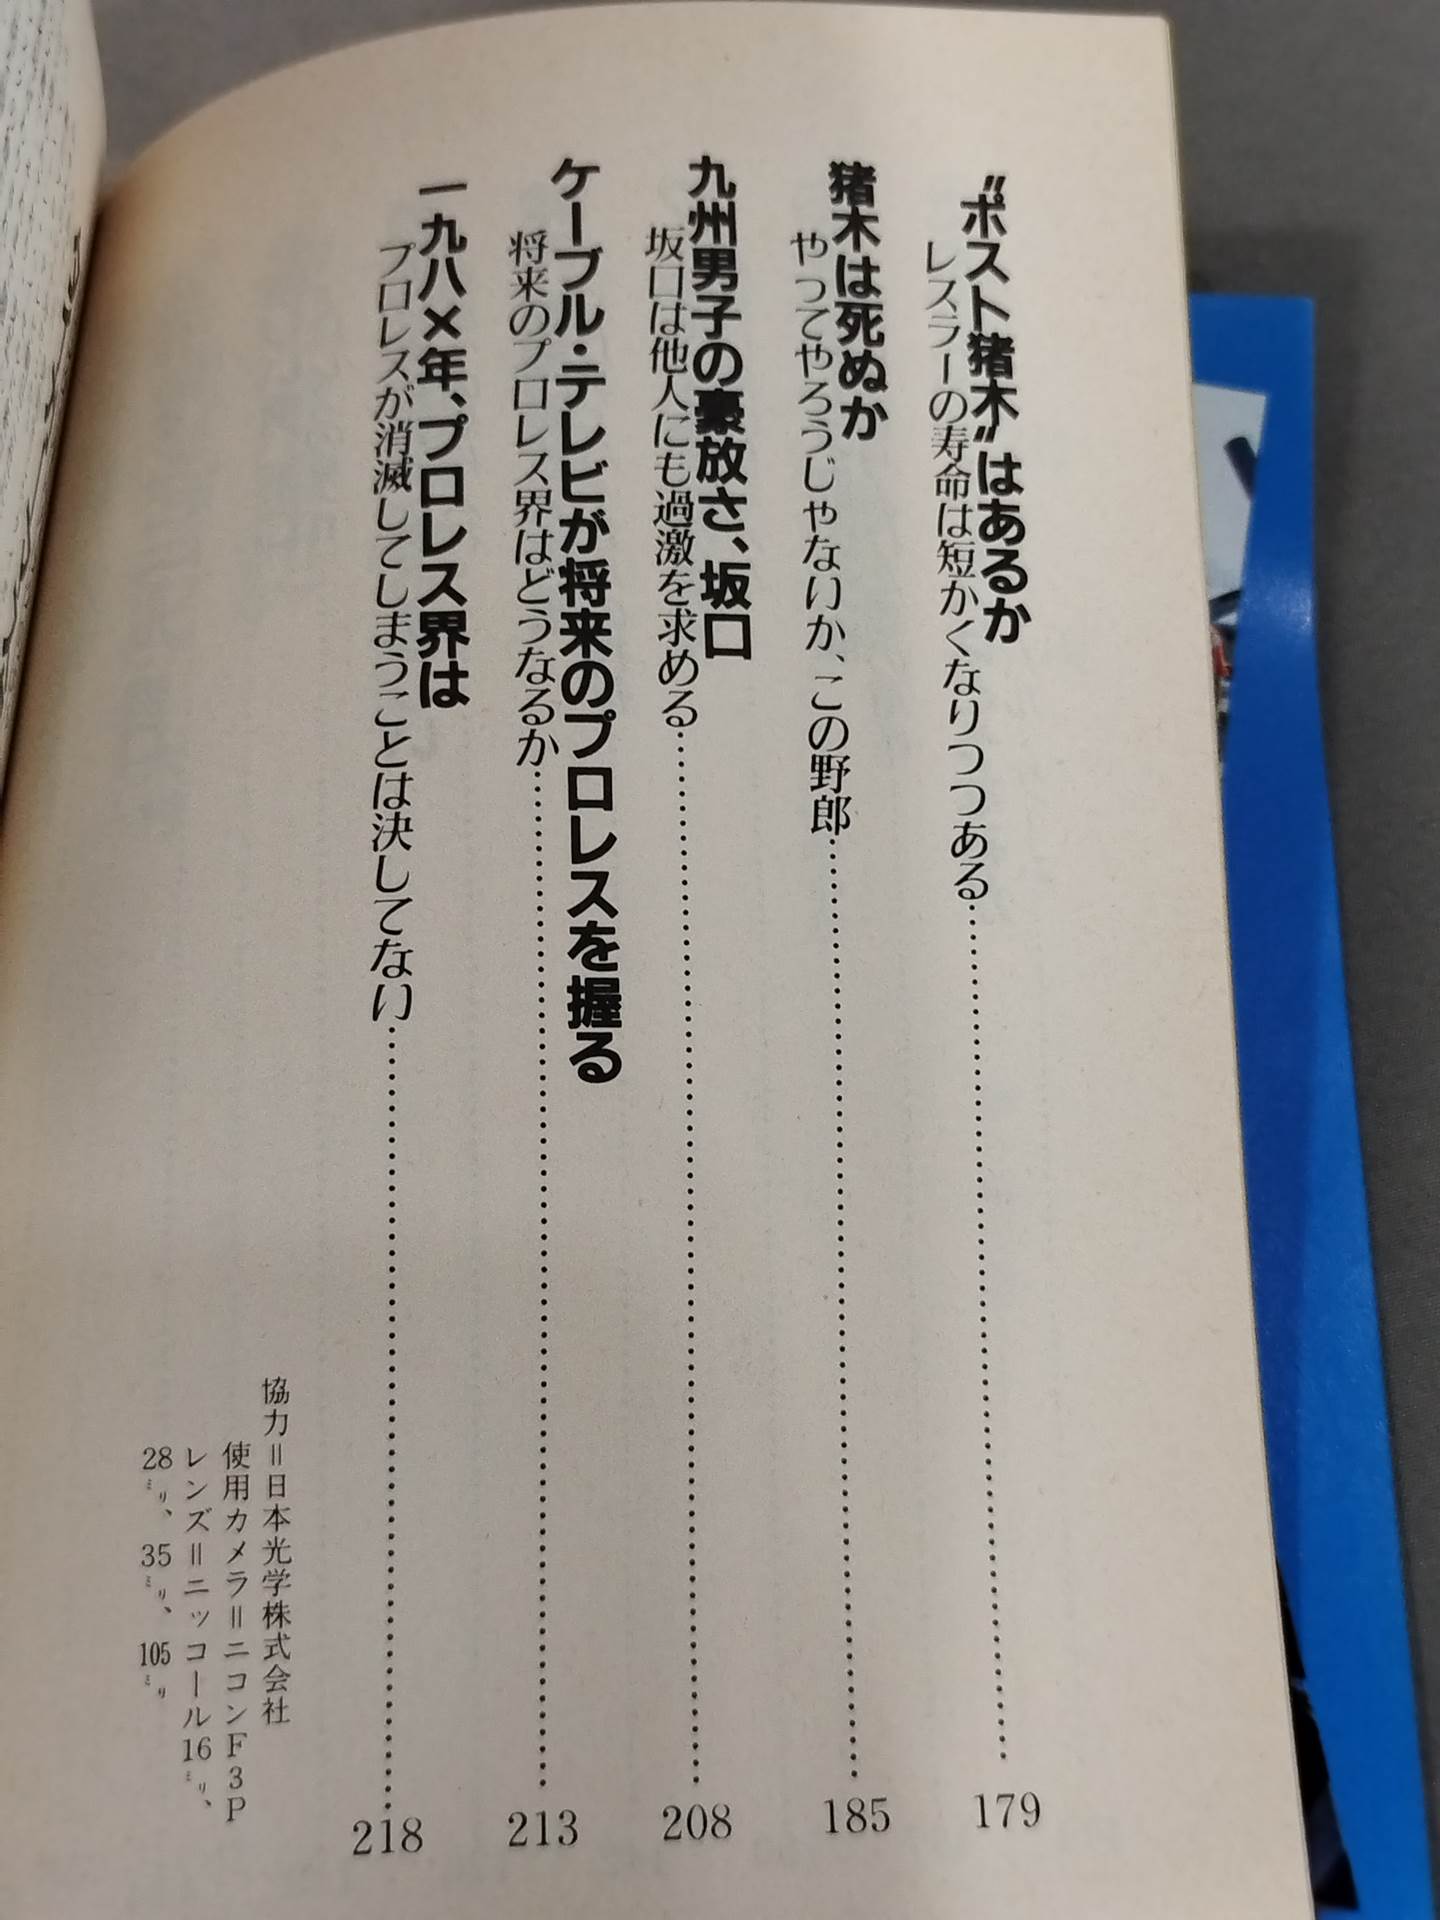 〝ポスト猪木〟はあるか
レスラーの寿命は短かくなりつつある……179
猪木は死ぬか
やってやろうじゃないか、この野郎……185
九州男子の豪放さ、坂口
坂口は他人にも過激を求める……208
ケーブル・テレビが将来のプロレスを握る
将来のプロレス界はどうなるか……213
一九八×年、プロレス界は
プロレスが消滅してしまうことは決してない……218
協力＝日本光学株式会社
使用カメラ＝ニコンF3P
レンズ＝ニッコール16㍉、
28㍉、35㍉、105㍉